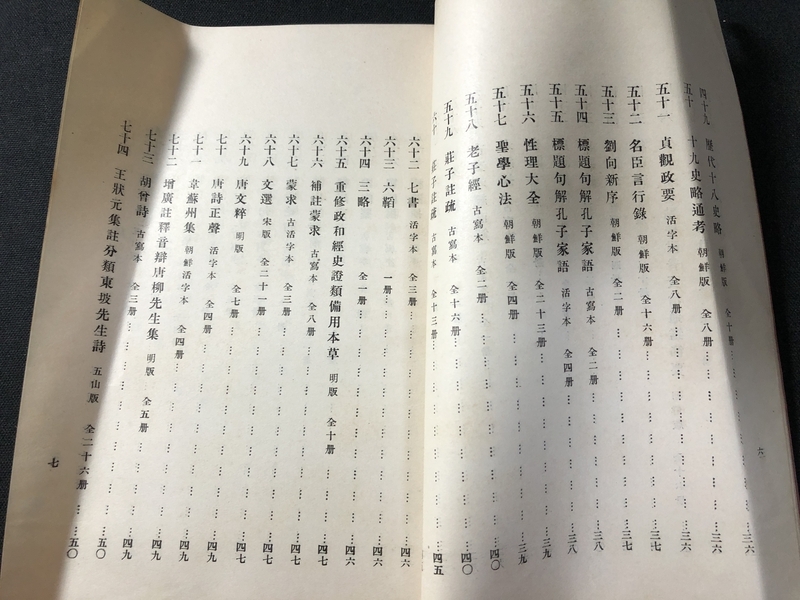 四十九 歷代十八史略 朝鮮版 全十册……三六
五十 十九史略通考 朝鮮版 全八册……三六
五十一 貞觀政要 活字本 全八册……三六
五十二 名臣言行錄 朝鮮版 全十六册……三七
五十三 劉向新序 朝鮮版 全二册……三七
五十四 標題句解孔子家語 古寫本 全二册……三八
五十五 標題句解孔子家語 活字本 全四册……三八
五十六 性理大全 朝鮮版 全二十三册……三九
五十七 聖學心法 朝鮮版 全四册……三九
五十八 老子經 古寫本 全二册……四〇
五十九 莊子註疏 古寫本 全十六册……四〇
六十 莊子註疏 古寫本 全十三册……四五
六
六十二 七書 活字本 全三册……四六
六十三 六韜 一册……四六
六十四 三略 全一册……四六
六十五 重修政和經史證類備用本草 明版 全十册……四六
六十六 補註蒙求 古寫本 全八册……四七
六十七 蒙求 古活字本 全三册……四七
六十八 文選 宋版 全二十一册……四七
六十九 唐文粹 明版 全七册……四七
七十 唐詩正聲 朝鮮版 全四册……四八
七十一 韋蘇州集 朝鮮活字本 全四册……四九
七十二 增廣註釋音辯唐柳先生集 明版 全五册……四九
七十三 胡曾詩 古寫本 全三册……五〇
七十四 王狀元集註分類東坡先生詩 五山版 全二十六册……五〇
七